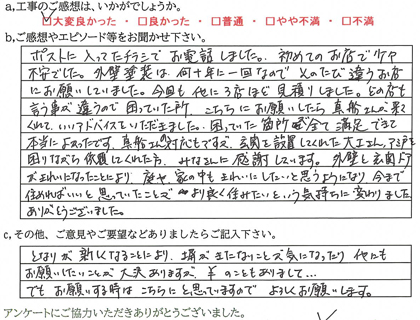 a,工事のご感想は、いかがでしょうか。
□大変良かった ・ □良かった ・ □普通 ・ □やや不満 ・ □不満
b,ご感想やエピソード等をお聞かせ下さい。
ポストに入ってたチラシでお電話しました。初めてのお店で少々
不安でした。外壁塗装は何十年に一回なのでそのたび違うお店
にお願いしていました。今回も他に3店ほど見積りしました。どの店も
言う事が違うので困っていた所、こちらにお願いしたら真船さんが来て
くれて、いいアドバイスをいただきました。困っていた箇所が全て満足できて
本当によかったです。真船さんの対応もですが、玄関を設置してくれた大工さん、アミ戸を
困りながら依頼してくれた方、みなさんに感謝しています。外壁と玄関ドア
がきれいになったことにより、庭や、家の中もきれいにしたいと思うようになり 今まで
住めればいいと思っていたことが より良く住みたいという気持ちに変わりました
ありがとうございました。
c,その他、ご意見やご要望などありましたらご記入下さい。
となりが新しくなることにより、塀がまにないことで気になったり 他にも
お願いしたいことが大変ありますが、¥のこともありまして…
でもお願いする時はこちらにと思っていますので よろしくお願いします。
アンケートにご協力いただきありがとうございました。